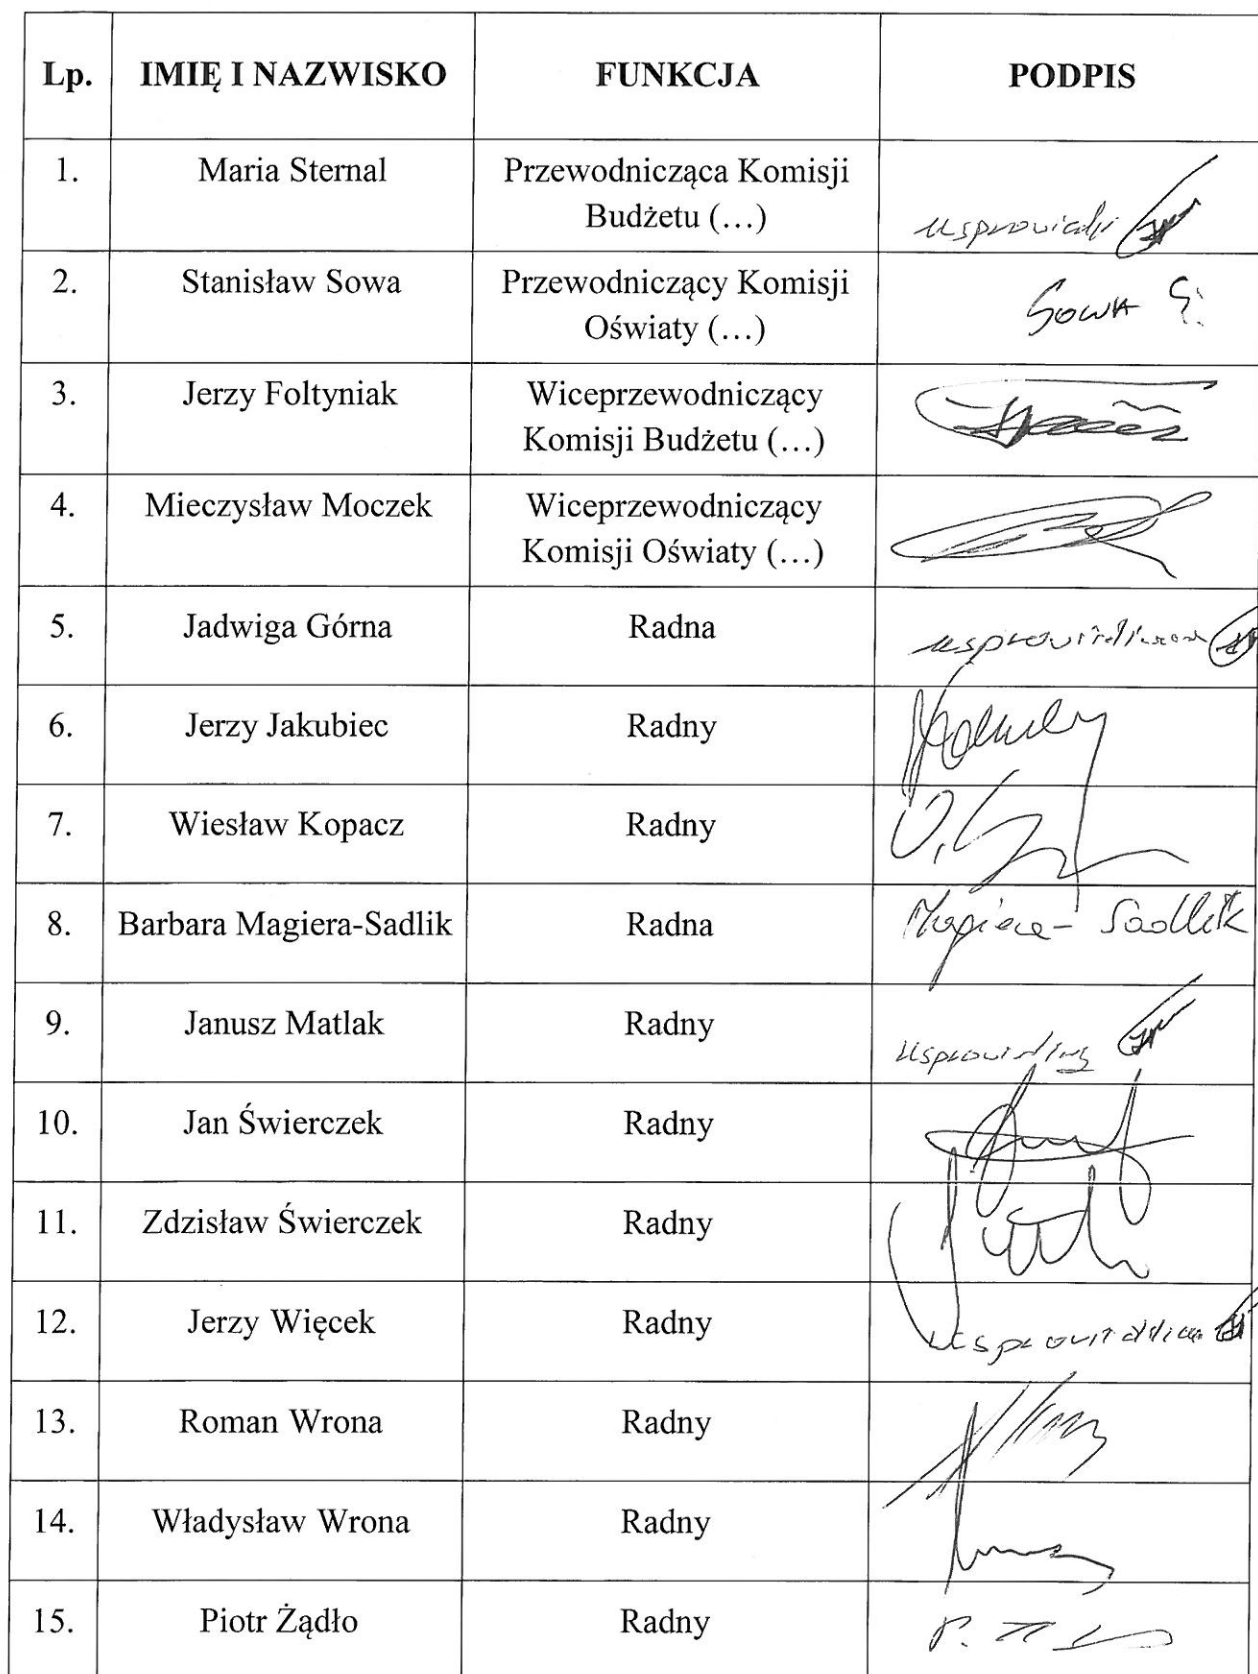 Lp. IMIĘ I NAZWISKO FUNKCJA PODPIS
1. Maria Sternal Przewodnicząca Komisji
Budżetu (…)
2. Stanisław Sowa Przewodniczący Komisji Sowa S.
Oświaty (…)
3. Jerzy Foltyniak Wiceprzewodniczący
Komisji Budżetu (…)
4. Mieczysław Moczek Wiceprzewodniczący
Komisji Oświaty (…)
5. Jadwiga Górna Radna
6. Jerzy Jakubiec Radny
7. Wiesław Kopacz Radny
8. Barbara Magiera-Sadlik Radna Magiera-Sadlik
9. Janusz Matlak Radny
10. Jan Świerczek Radny
11. Zdzisław Świerczek Radny
12. Jerzy Więcek Radny
13. Roman Wrona Radny
14. Władysław Wrona Radny
15. Piotr Żądło Radny